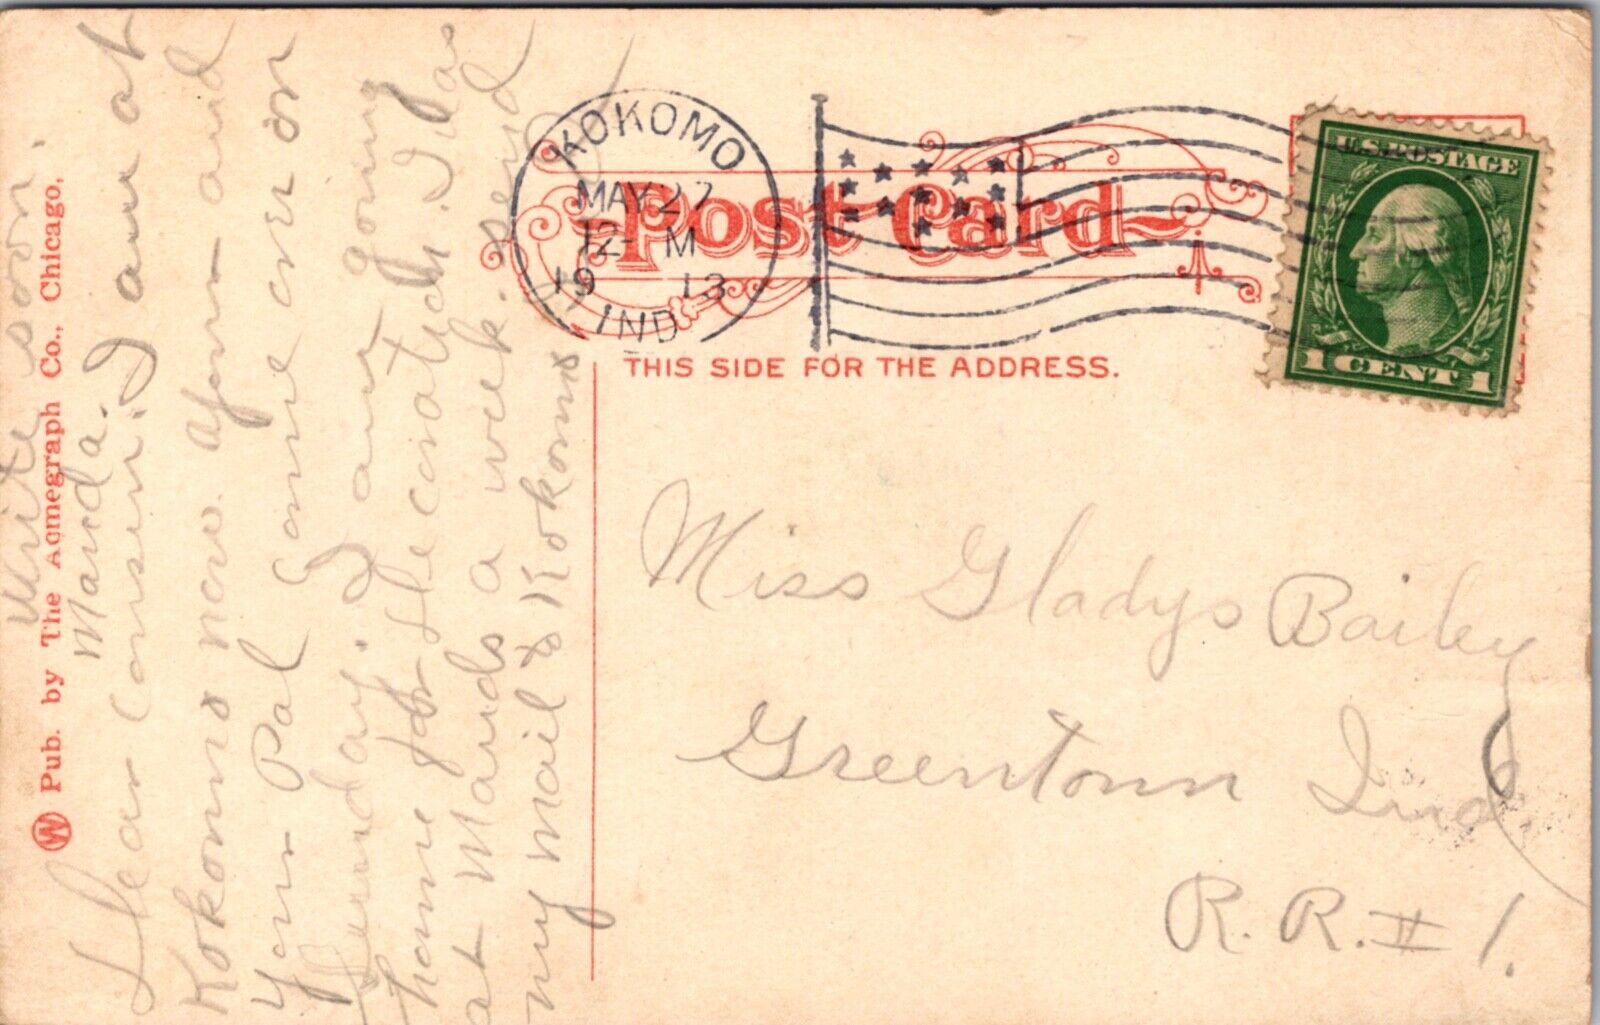 KOKOMO
MAY 27
12 M
19 13
IND
Post Card
U.S. POSTAGE
1 CENT 1
THIS SIDE FOR THE ADDRESS.
Miss Gladys Bailey
Greentown Ind.
R. R. # 1.
Pub. by The Acmegraph Co., Chicago.
W
Dear Cousin: I am at
Kokomo now. and
your Pal came over on
Sunday. I am going
home for Decoration. I was
at Mauds a week. send
my mail to Kokomo
write soon.
Mauda.